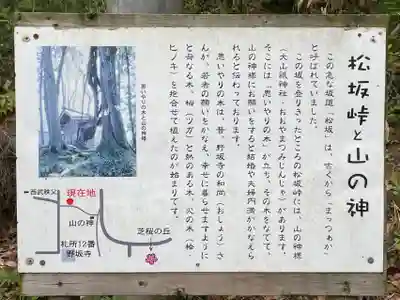 松坂峠と山の神
この急な坂道「松坂」は、古くから「まっつぁか」
と呼ばれていました。
この坂を登りきったところの松坂峠には、山の神様
(大山祇神社・おおやまつみじんじゃ)があります。
そこには「思いやりの木」が立ち、その木をなでて、
山の神様にお願いをすると結婚や夫婦円満がかなえら
れると伝わっております。
思いやりの木は、昔、野坂寺の和尚(おしょう)さ
んが、若者の願いをかなえ、幸せに暮らせますように
と母なる木、栂(ツガ)と熱のある木、火の木(桧
ヒノキ)を抱合せて植えたのが始まりです。
思いやりの木と山の神様
西武秩父
現在地
山の神
芝桜の丘
札所12番
野坂寺